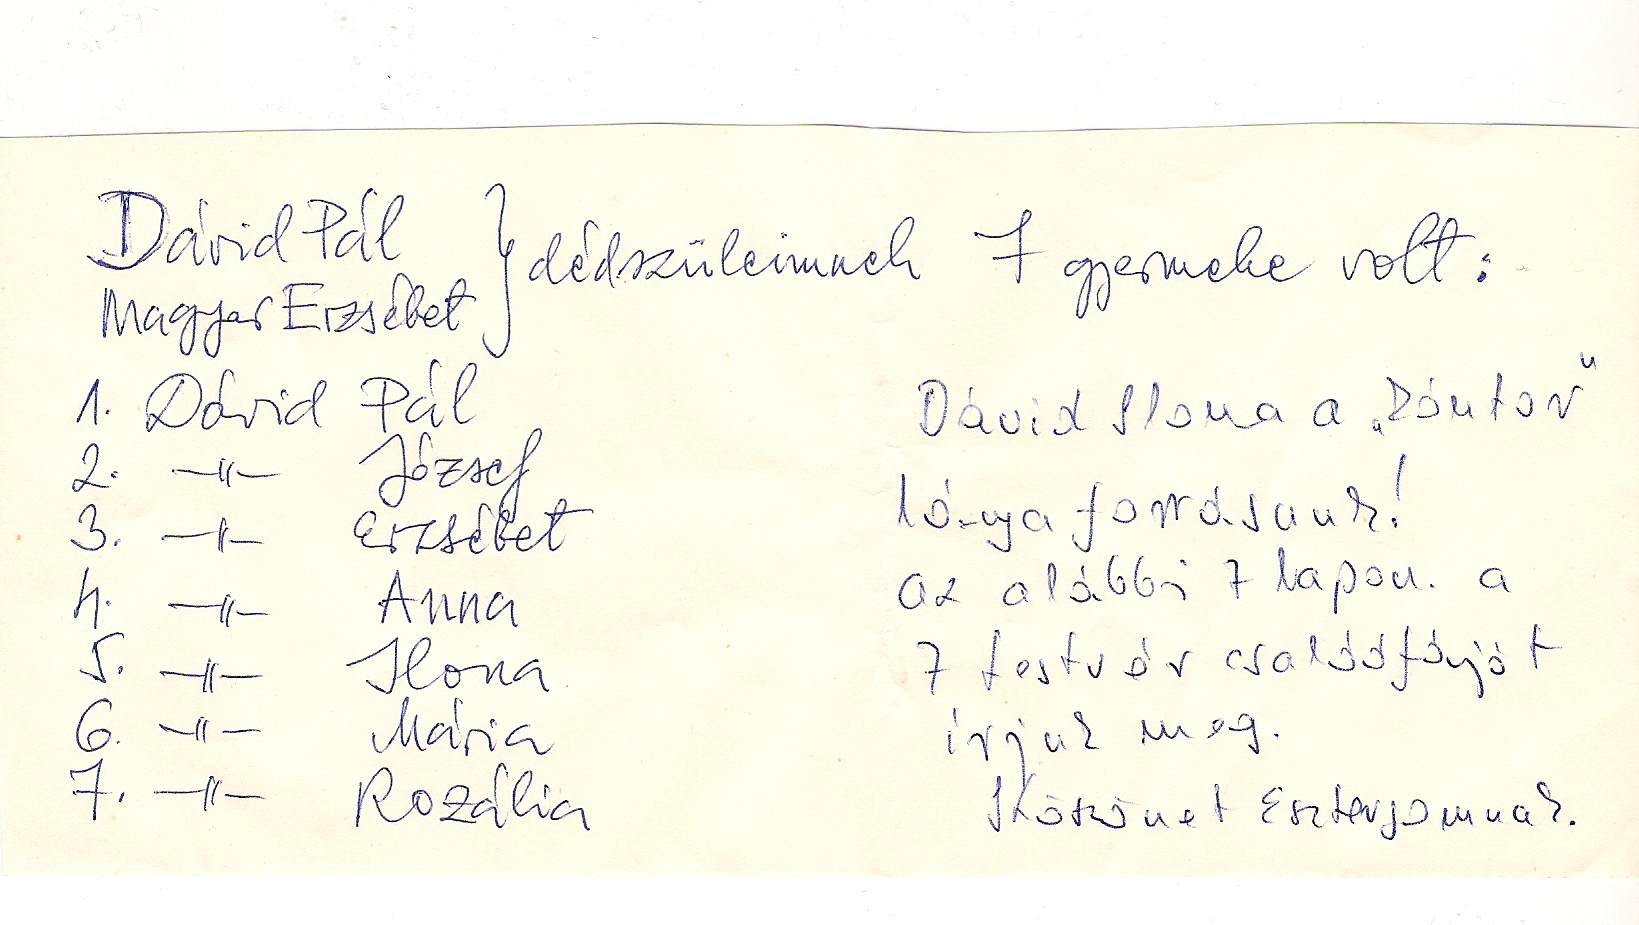 Dávid Pál
Magyar Erzsébet } dédszüleimnek 7 gyermeke volt:
1. Dávid Pál
2. —〃— József
3. —〃— Erzsébet
4. —〃— Anna
5. —〃— Ilona
6. —〃— Mária
7. —〃— Rozália
Dávid Ilona a „Kántor”
lánya forrásunk!
az alábbi 7 lapon. a
7 testvér családfáját
írjuk meg.
Köszönet Esztergomnak.